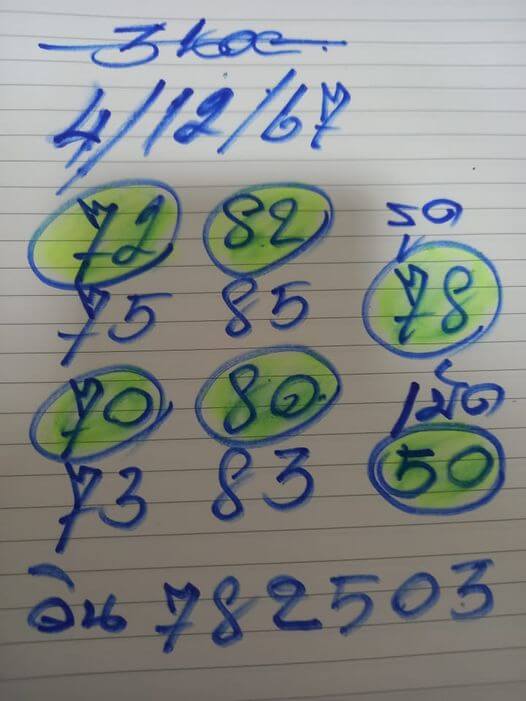 3
4/12/67
72 82
75 85
70 80
73 83
รูด
78
เม็ด
50
วิน 782503